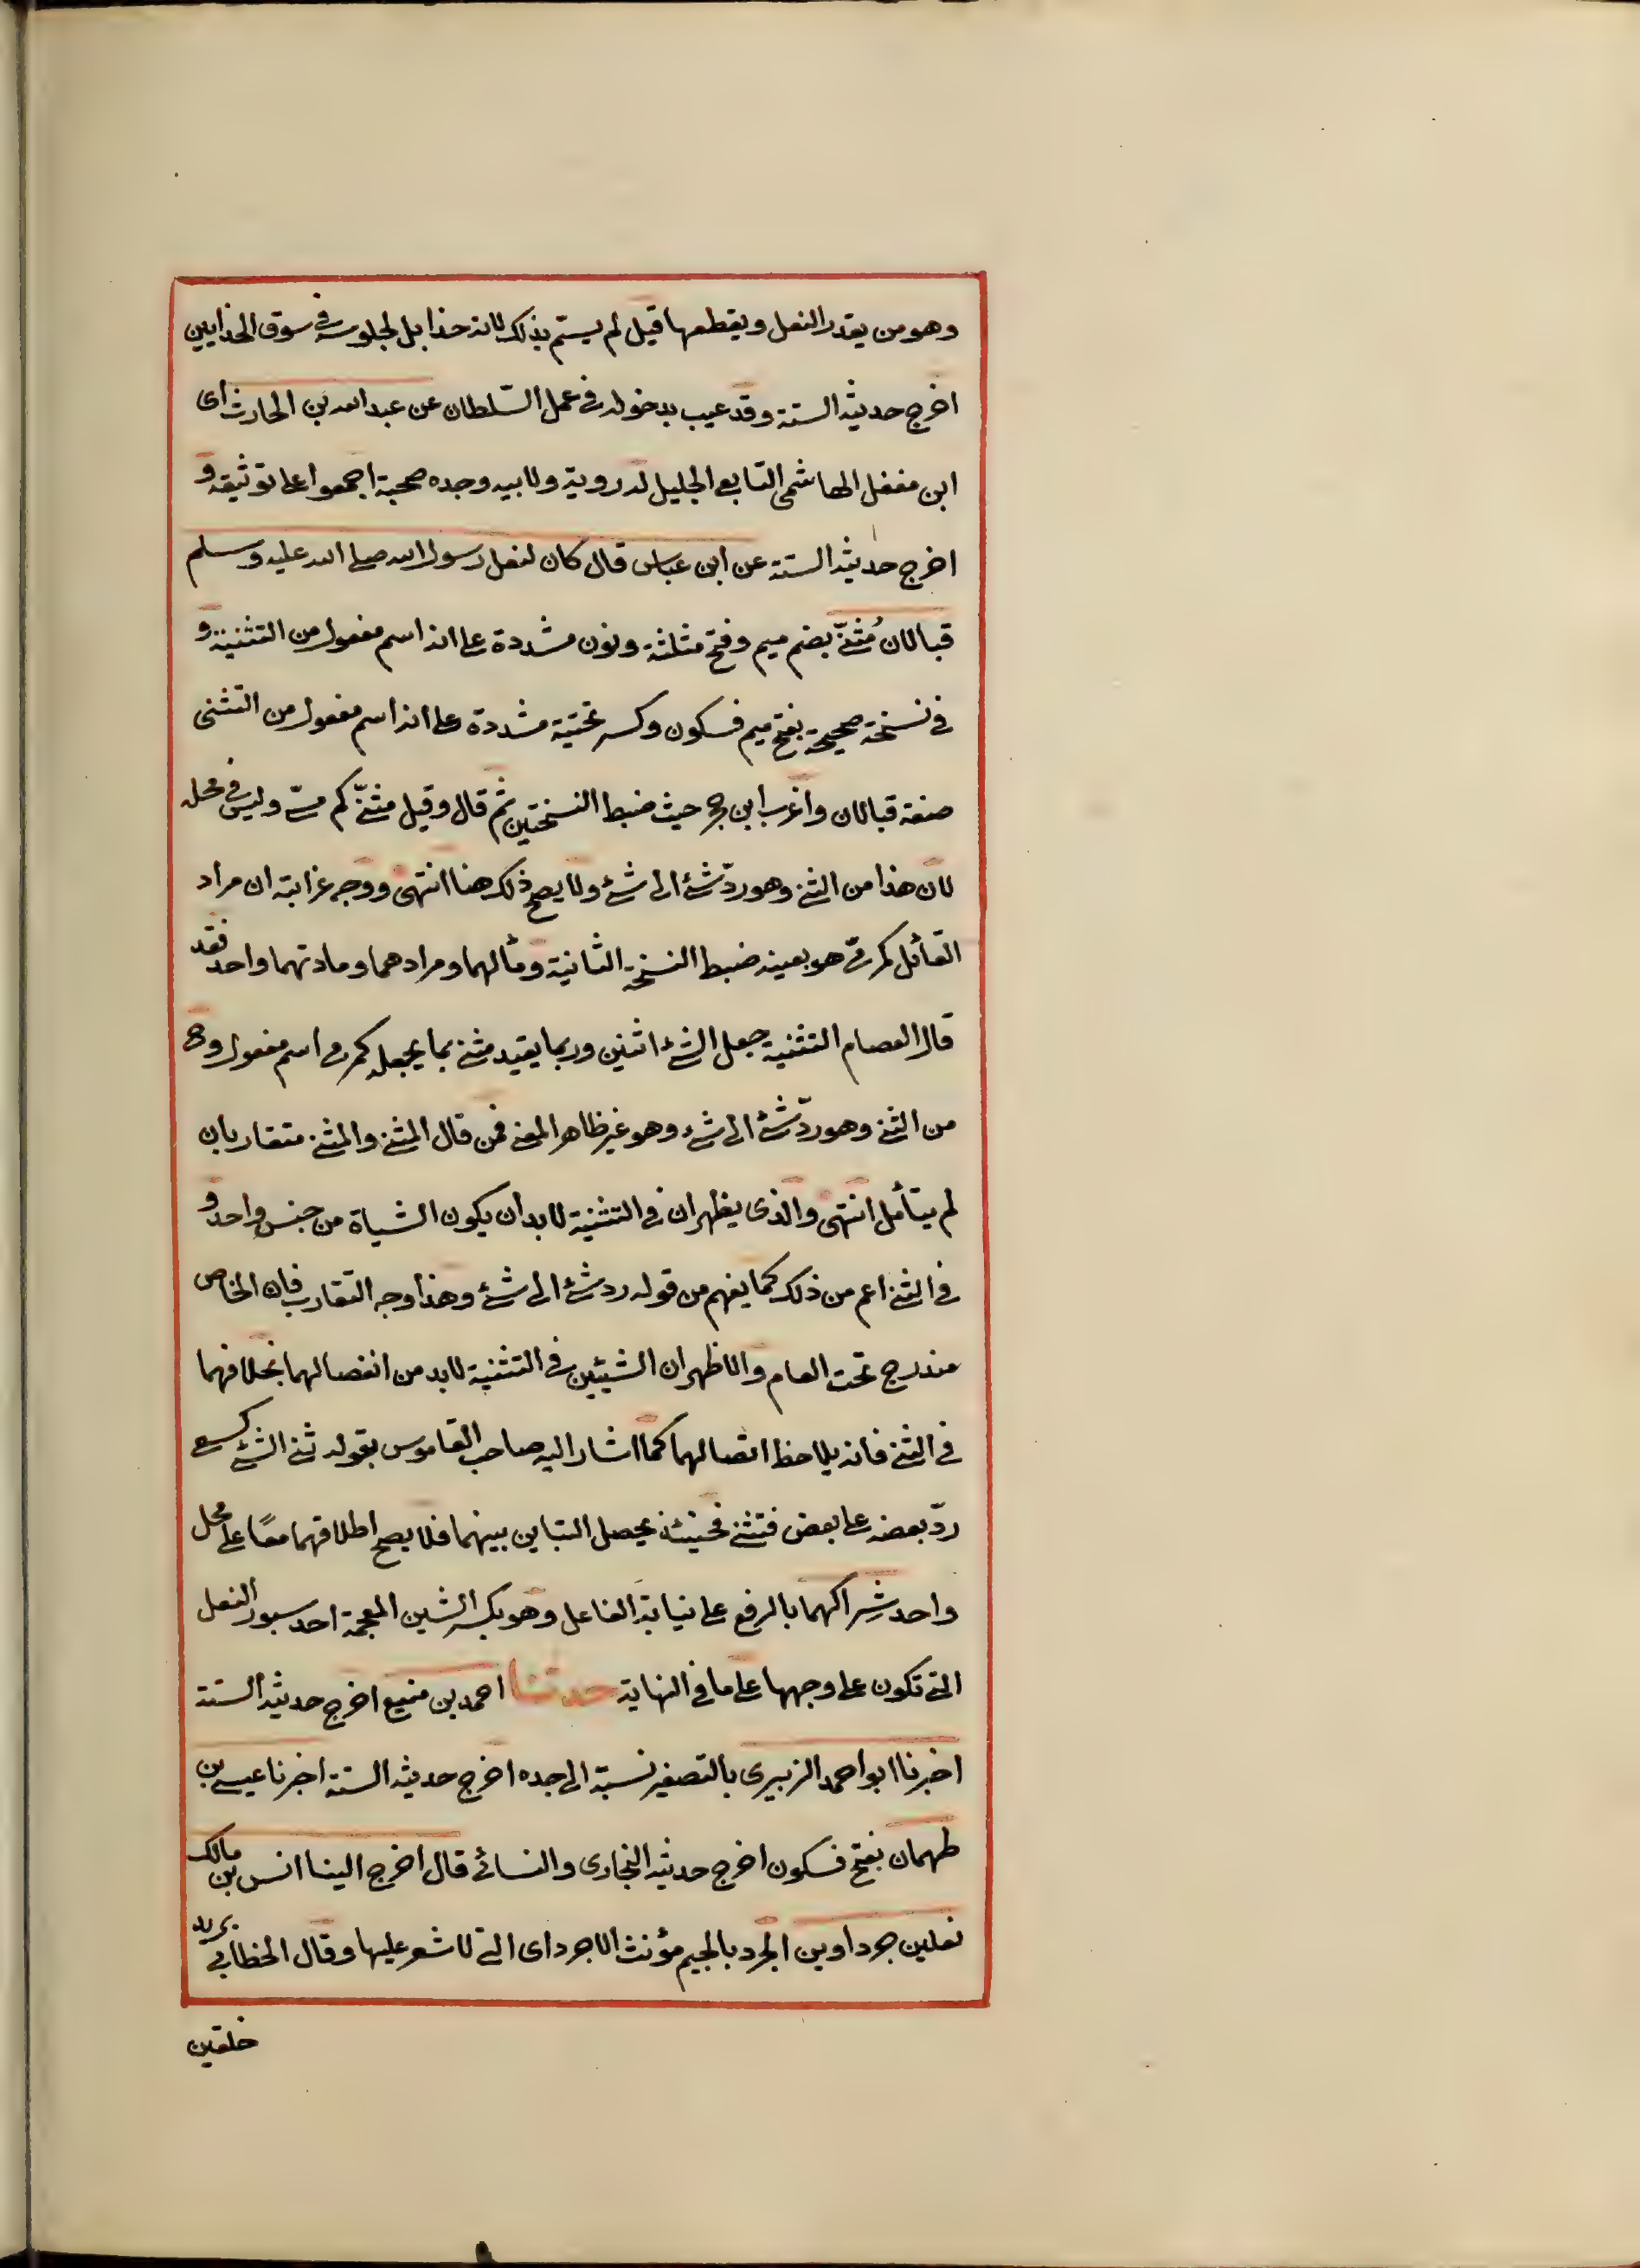 وهو من يقدر النعل ويقطعها قيل لم يستم بذلك لانه حذا بل لجلوسه في سوق الحذايين
اخرج حديثه الستة وقد عيب بدخوله في عمل السّلطان عن عبد الله بن الحارث اى
ابن مغفل الهاشمى التابع الجليل له روية ولابيه وجده صحبة اجمعوا على توثيقه و
اخرج حديثه الستة عن ابن عباس قال كان لنعل رسول الله صلى الله عليه وسلم
قبالان مُثنّى بضم ميم وفتح مثلثة ونون مشددة على انه اسم مفعول من التثنية و
في نسخة صحيحة بفتح ميم فسكون وكسر تحتية مشددة على انه اسم مفعول من التثنى
صفة قبالان واغرب ابن حجر حيث ضبط النسختين ثم قال وقيل مثنىّ كم مىّ وليس في محله
لان هذا من الثنى وهو ردّ شئ الى شئ ولا يصح ذلك هنا انتهى ووجه غرابته ان مراد
القائل كمرمىّ هو بعينه ضبط النسخة الثانية ومآلهما ومرادهما ومادتهما واحد فقد
قال العصام التثنية جعل الشئ اثنين وربما يقيد مثنى بما يجعله كمرمى اسم مفعول وح
من الثنى وهو ردّ شئ الى شئ وهو غير ظاهر المعنى فمن قال المثنى والمثنى متقاربان
لم يتأمل انتهى والذى يظهر ان في التثنية لابد ان يكون الشياة من جنس واحد و
في الثنى اعم من ذلك كما يفهم من قوله رد شئ الى شئ وهذا وجه التقارب فان الخاص
مندرج تحت العام والاظهر ان الشيئين في التثنية لابد من انفصالهما بخلافهما
في الثنى فانه يلاحظ اتصالهما كما اشار اليه صاحب القاموس بقوله ثنى الشئ كسعى
ردّ بعضه على بعض فتثنى فحينئذ يحصل التباين بينهما فلا يصح اطلاقهما معًا على محل
واحد شِراكهما بالرفع على نيابة الفاعل وهو بكسر الشين المعجمة احد سيور النعل
التى تكون على وجهها على ما في النهاية حدثنا احمد بن منيع اخرج حديثه الستة
اخبرنا ابو احمد الزبيرى بالتصغير نسبة الى جده اخرج حديثه الستة اخبرنا عيسى بن
طهمان بفتح فسكون اخرج حديثه البخارى والنسائى قال اخرج الينا انس بن مالك
نعلين جرداوين الجرد بالجيم مؤنث الاجرد اى التى لا شعر عليها وقال الخطابى يريد
خلقين